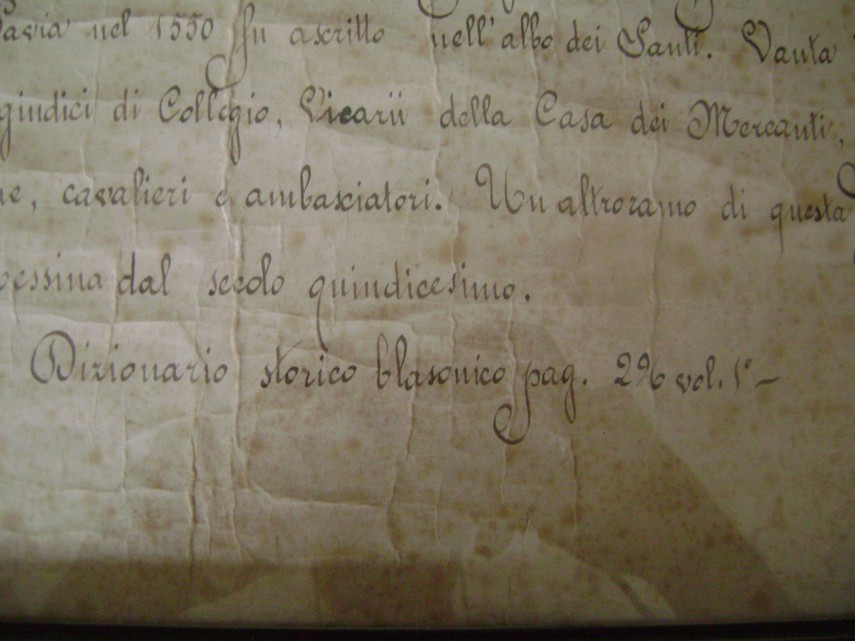 Pavia nel 1550 fu ascritto nell'albo dei Santi. Vanta
giudici di Collegio, Vicarii della Casa dei Mercanti,
cavalieri e ambasciatori. Un altro ramo di questa
dal secolo quindicesimo.
Dizionario storico blasonico pag. 296 vol. 1° –